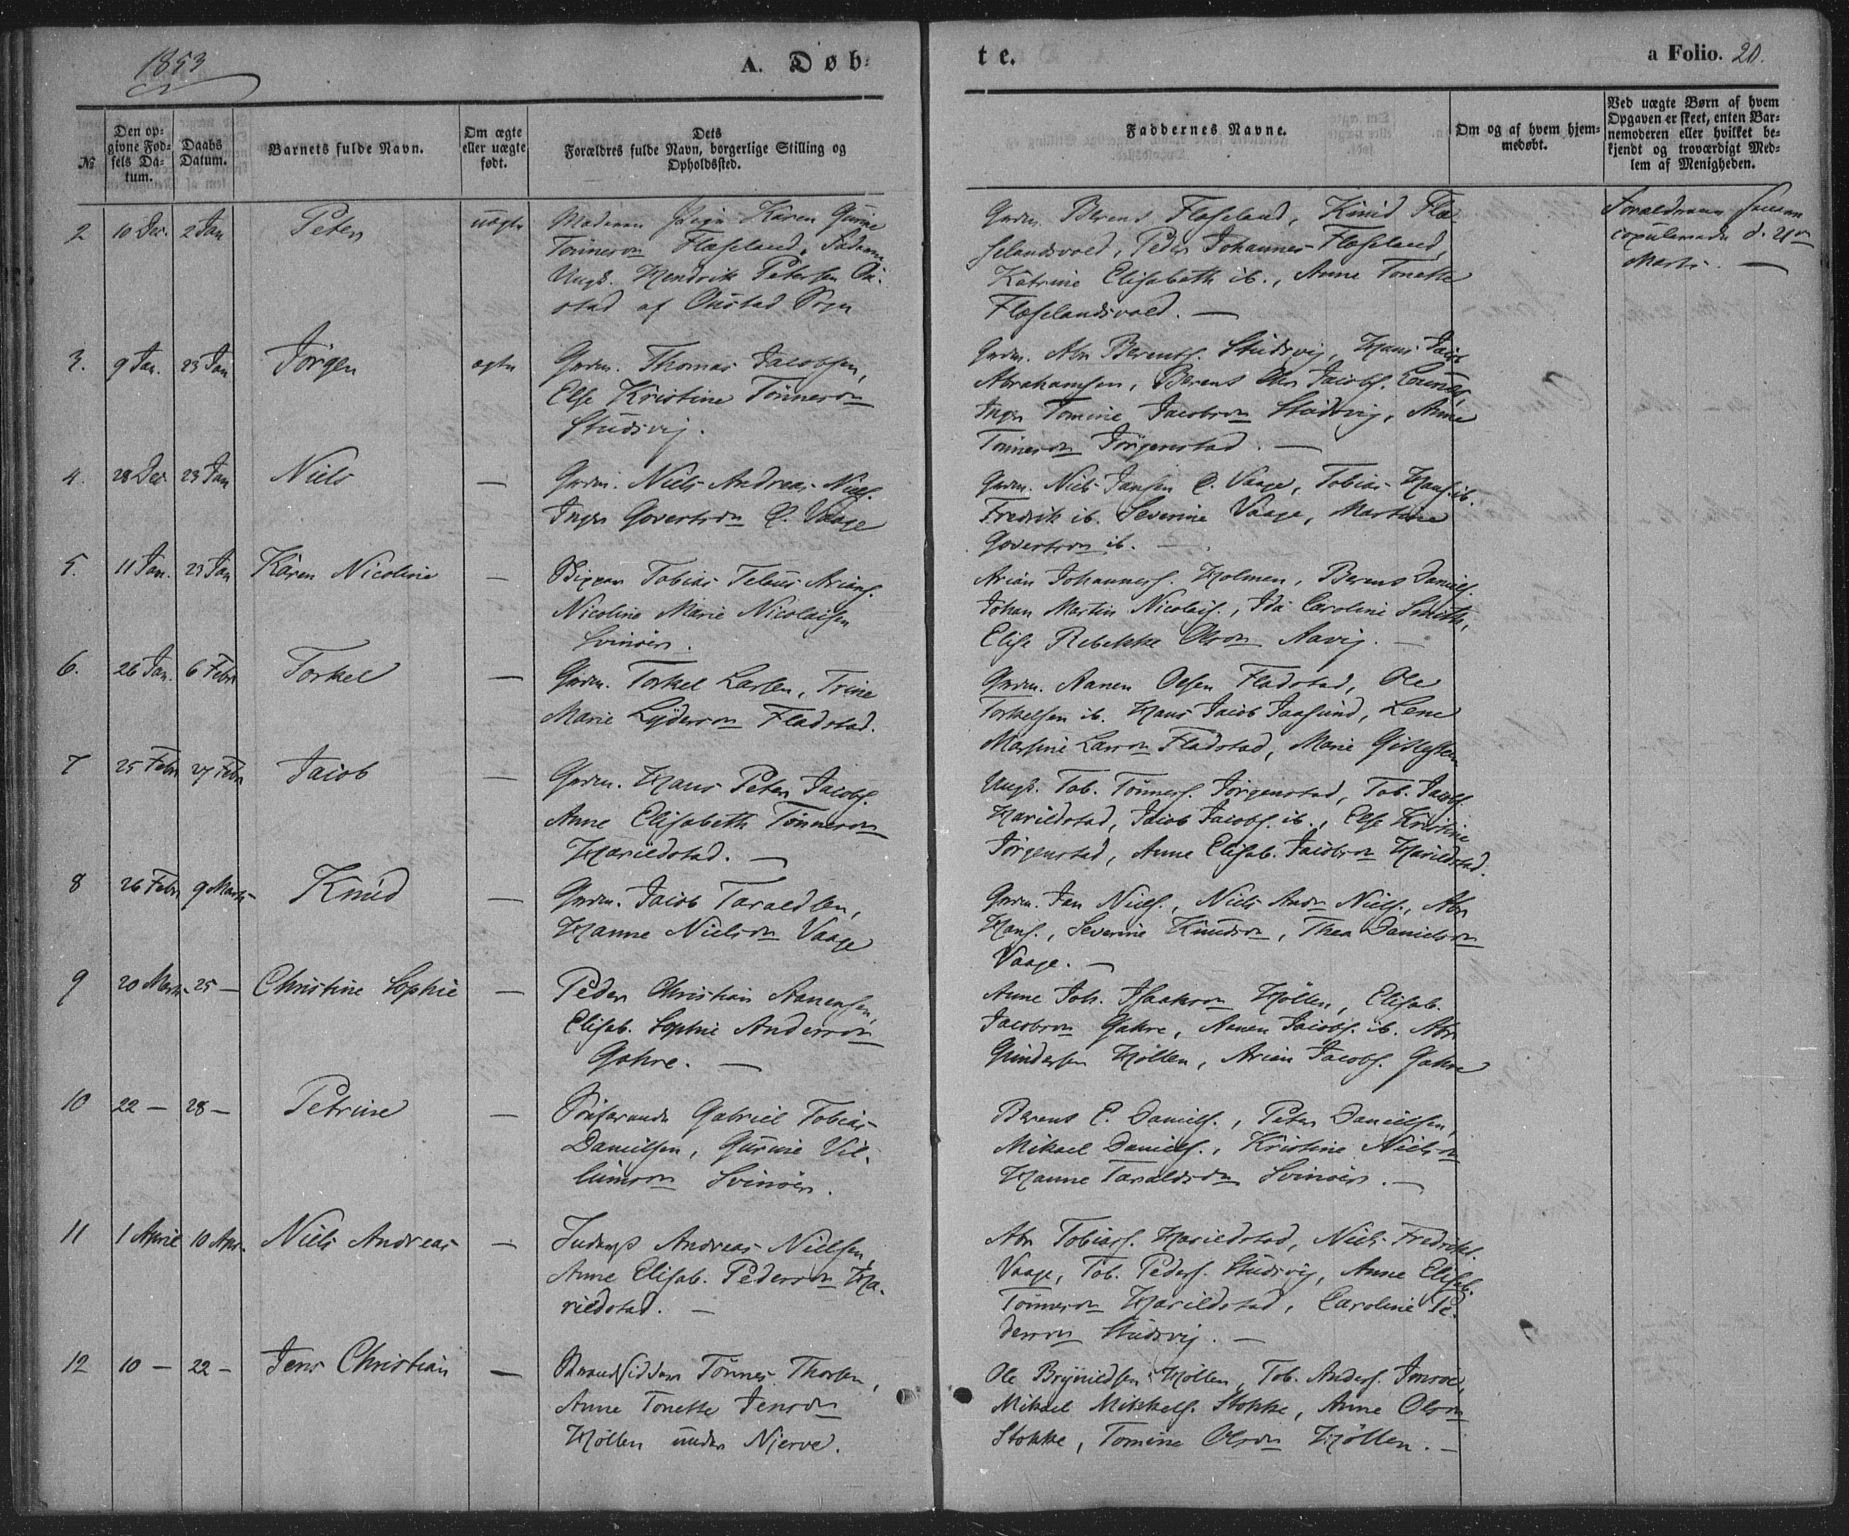 1853
A. Døb
te.
a Folio. 20.
№
Den op-
givne Fød-
sels Da-
tum.
Daabs
Datum.
Barnets fulde Navn.
Om ægte
eller uægte
født.
Dets
Forældres fulde Navn, borgerlige Stilling og
Opholdssted.
Faddernes Navne.
Om og af hvem hjem-
medøbt.
Ved uægte Børn af hvem
Opgaven er skeet, enten Bar-
nemoderen eller hvilket be-
kjendt og troværdigt Med-
lem af Menigheden.
2 10 Dec. 2 Jan Peter uægte
Karen Gurine
Tønnesen Flæseland,
Ungk. Hendrik Petersen
stad af Sogn
Gaardm. Berent Flæseland, Knud Flæ
selandsvold, Peder Johannes Flæseland,
Katrine Elisabeth ib., Anne Tonette
Flæselandsvold. —
Forældrene
copulerede d. 21
Marts. —
3. 9 Jan. 23 Jan Jørgen ægte
Grdm. Thomas Jacobsen,
Else Kristine Tønnesdn
Studsvig.
Grdm. Abr Berents. Studsvig, Hans Jacob
Abrahamsen, Berent Jacobs.
Inger Tomine Jacobsdn Studsvig, Anne
Tønnesdn Jørgenstad. —
4. 28 Dec 23 Jan Niels —
Grdm. Niels Andreas Niels.
Inger Govertsdn Vaage
Grdm. Niels Jansen Vaage, Tobias Hans. ib.
Fredrik ib. Severine Vaage, Martine
Govertsdn ib. —
5. 11 Jan. 23 Jan Karen Nicoline —
Tobias Teleus Arians.
Nicoline Marie Nicolaisen
Svinøer.
Arian Johannes. Holmen, Berent Daniels.
Johan Martin Nicolais., Ida Caroline Smith,
Elise Rebekke Olsdn Aavig. —
6. 26 Jan. 6 Febr Torkel —
Grdm. Torkel Larsen, Trine
Marie Lydersdn Fladstad.
Grdm. Aanen Olsen Fladstad, Ole
Torkelsen ib. Hans Jacob Jaasund, Lene
Martine Larsdn Fladstad, Marie
7 25 Febr 27 Febr Jacob —
Grdm. Hans Peter Jacobs.
Anne Elisabeth Tønnesdn
Harildstad. —
Ungk. Tob. Tønnes. Jørgenstad, Tob. Jacobs
Harildstad, Jacob Jacobs. ib., Else Kristine
Jørgenstad, Anne Elisab. Jacobsdn Harildstad.
8 26 Febr 9 Marts Knud —
Grdm. Jacob Taraldsen,
Hanne Nielsdn Vaage
Grdm. Jan Niels., Niels Andr Niels., Abr
Hans., Severine Knudsdn, Thea Danielsdn
Vaage. —
9 20 Marts 25 — Christine Sophie —
Peder Christian Aanensen,
Elisab. Sophie Andersdn
Gahre. —
Anne Joh. Isaaksdn Høllen, Elisab.
Jacobsdn Gahre, Aanen Jacobs. ib. Abr
Gundersen Høllen, Arian Jacobs. Gahre
10 22 — 28 — Petrine —
Søfarende Gabriel Tobias
Danielsen, Gurine Vil-
lumsdn Svinøer.
Berent E. Daniels., Peter Danielsen,
Mikael Daniels., Kristine Nielsdn
Hanne Taraldsdn Svinøer. —
11 1 April 10 Apr. Niels Andreas —
Inderst Andreas Nielsen,
Anne Elisab. Pedersdn Ha-
rildstad. —
Abr Tobias. Harildstad, Niels Fredriks.
Vaage, Tob. Peders. Studsvig, Anne Elisab.
Tønnesdn Harildstad, Caroline Pe-
dersdn Studsvig. —
12 10 — 22 — Jens Christian —
Strandsidder Tønnes Thorsen,
Anne Tonette Jensdn
Høllen under Njerve.
Ole Brynildsen Høllen, Tob. Anders. Imroe,
Mikael Mikkels. Stokke, Anne Olsdn
Stokke, Tomine Olsdn Høllen. —